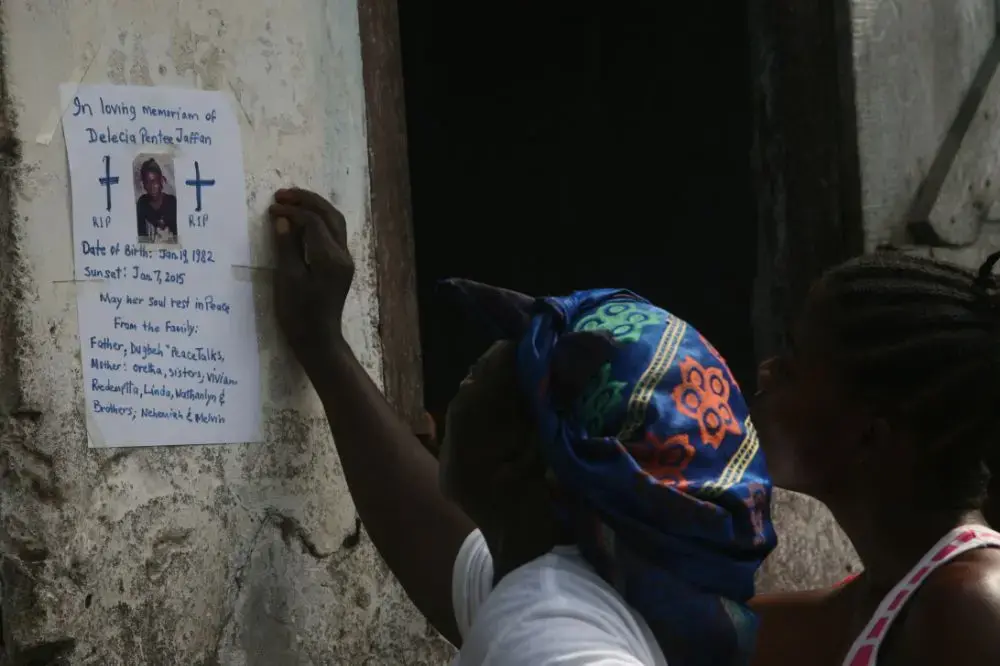 In loving memoriam of
Delecia Pentee Jaffan
RIP RIP
Date of Birth: Jan.19, 1982
Sunset: Jan. 7, 2015
May her soul rest in Peace
From the Family:
Father, Dugbeh "PeaceTalks,
Mother: oretha, sisters, Vivian
Redempta, Linda, Nathanlyn &
Brothers; Nehemiah & Melvin